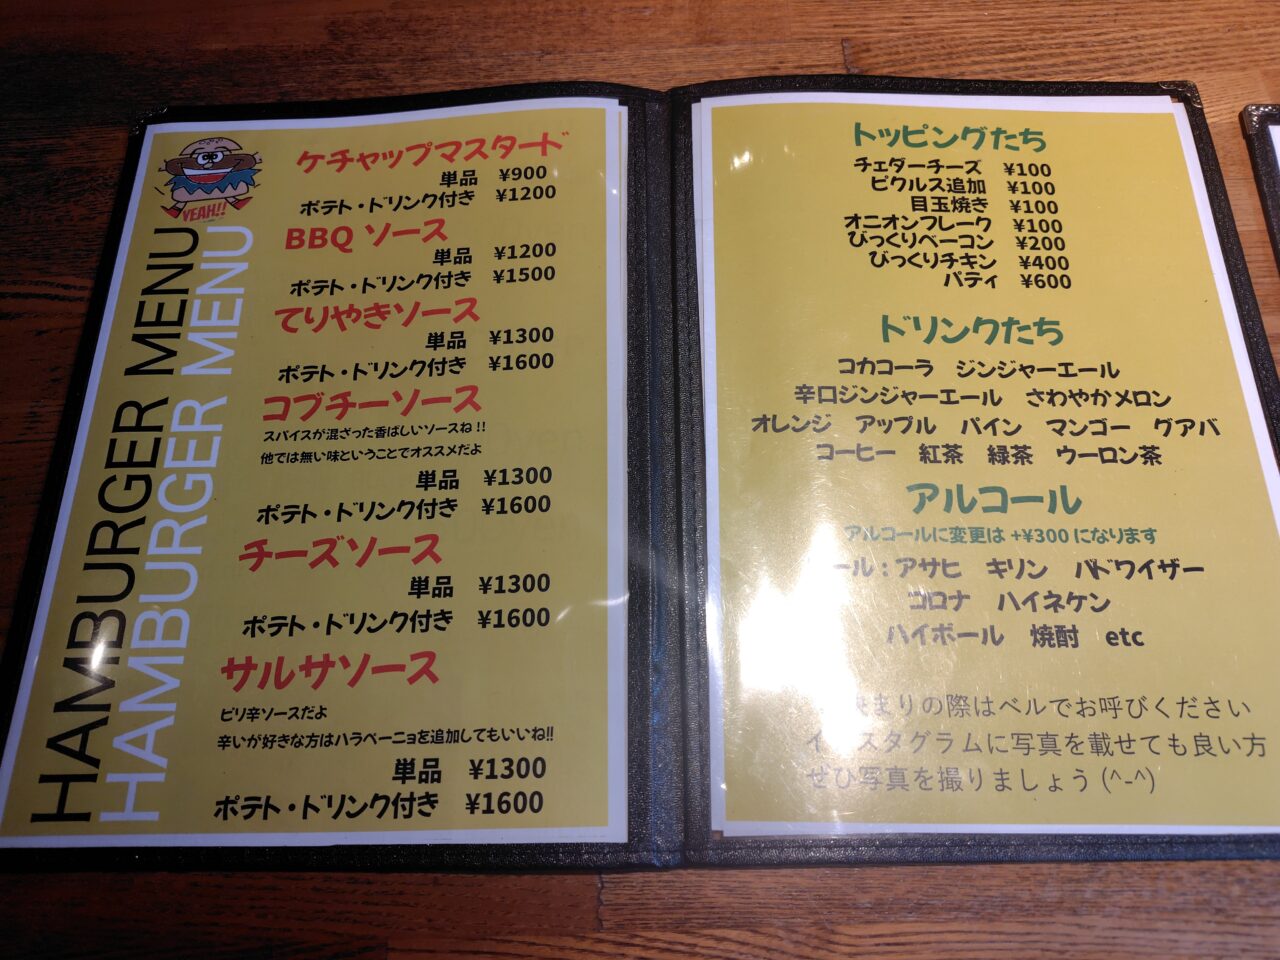 YEAH!!
HAMBURGER MENU
HAMBURGER MENU
ケチャップマスタード
単品 ¥900
ポテト・ドリンク付き ¥1200
BBQ ソース
単品 ¥1200
ポテト・ドリンク付き ¥1500
てりやきソース
単品 ¥1300
ポテト・ドリンク付き ¥1600
コブチーソース
スパイスが混ざった香ばしいソースね!!
他では無い味ということでオススメだよ
単品 ¥1300
ポテト・ドリンク付き ¥1600
チーズソース
単品 ¥1300
ポテト・ドリンク付き ¥1600
サルサソース
ピリ辛ソースだよ
辛いが好きな方はハラペーニョを追加してもいいね!!
単品 ¥1300
ポテト・ドリンク付き ¥1600
トッピングたち
チェダーチーズ ¥100
ピクルス追加 ¥100
目玉焼き ¥100
オニオンフレーク ¥100
びっくりベーコン ¥200
びっくりチキン ¥400
パティ ¥600
ドリンクたち
コカコーラ ジンジャーエール
辛口ジンジャーエール さわやかメロン
オレンジ アップル パイン マンゴー グアバ
コーヒー 紅茶 緑茶 ウーロン茶
アルコール
アルコールに変更は +¥300 になります
ール : アサヒ キリン バドワイザー
コロナ ハイネケン
ハイボール 焼酎 etc
決まりの際はベルでお呼びください
インスタグラムに写真を載せても良い方
ぜひ写真を撮りましょう (^-^)